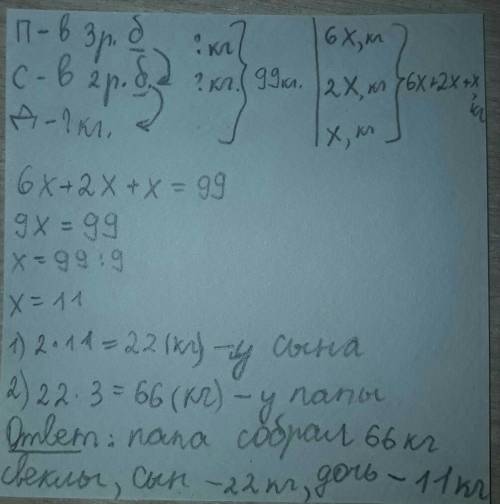 П - в 3 р. б ? кг } | 6x, кг }
С - в 2 р. б. ? кг. } 99кг. | 2x, кг } 6x+2x+x,
Д - ? кг. } | x, кг } кг
6x+2x+x = 99
9x = 99
x = 99 : 9
x = 11
1) 2·11 = 22 (кг) - у сына
2) 22 · 3 = 66 (кг) - у папы
Ответ: папа собрал 66 кг
свеклы, сын - 22 кг, дочь - 11 кг